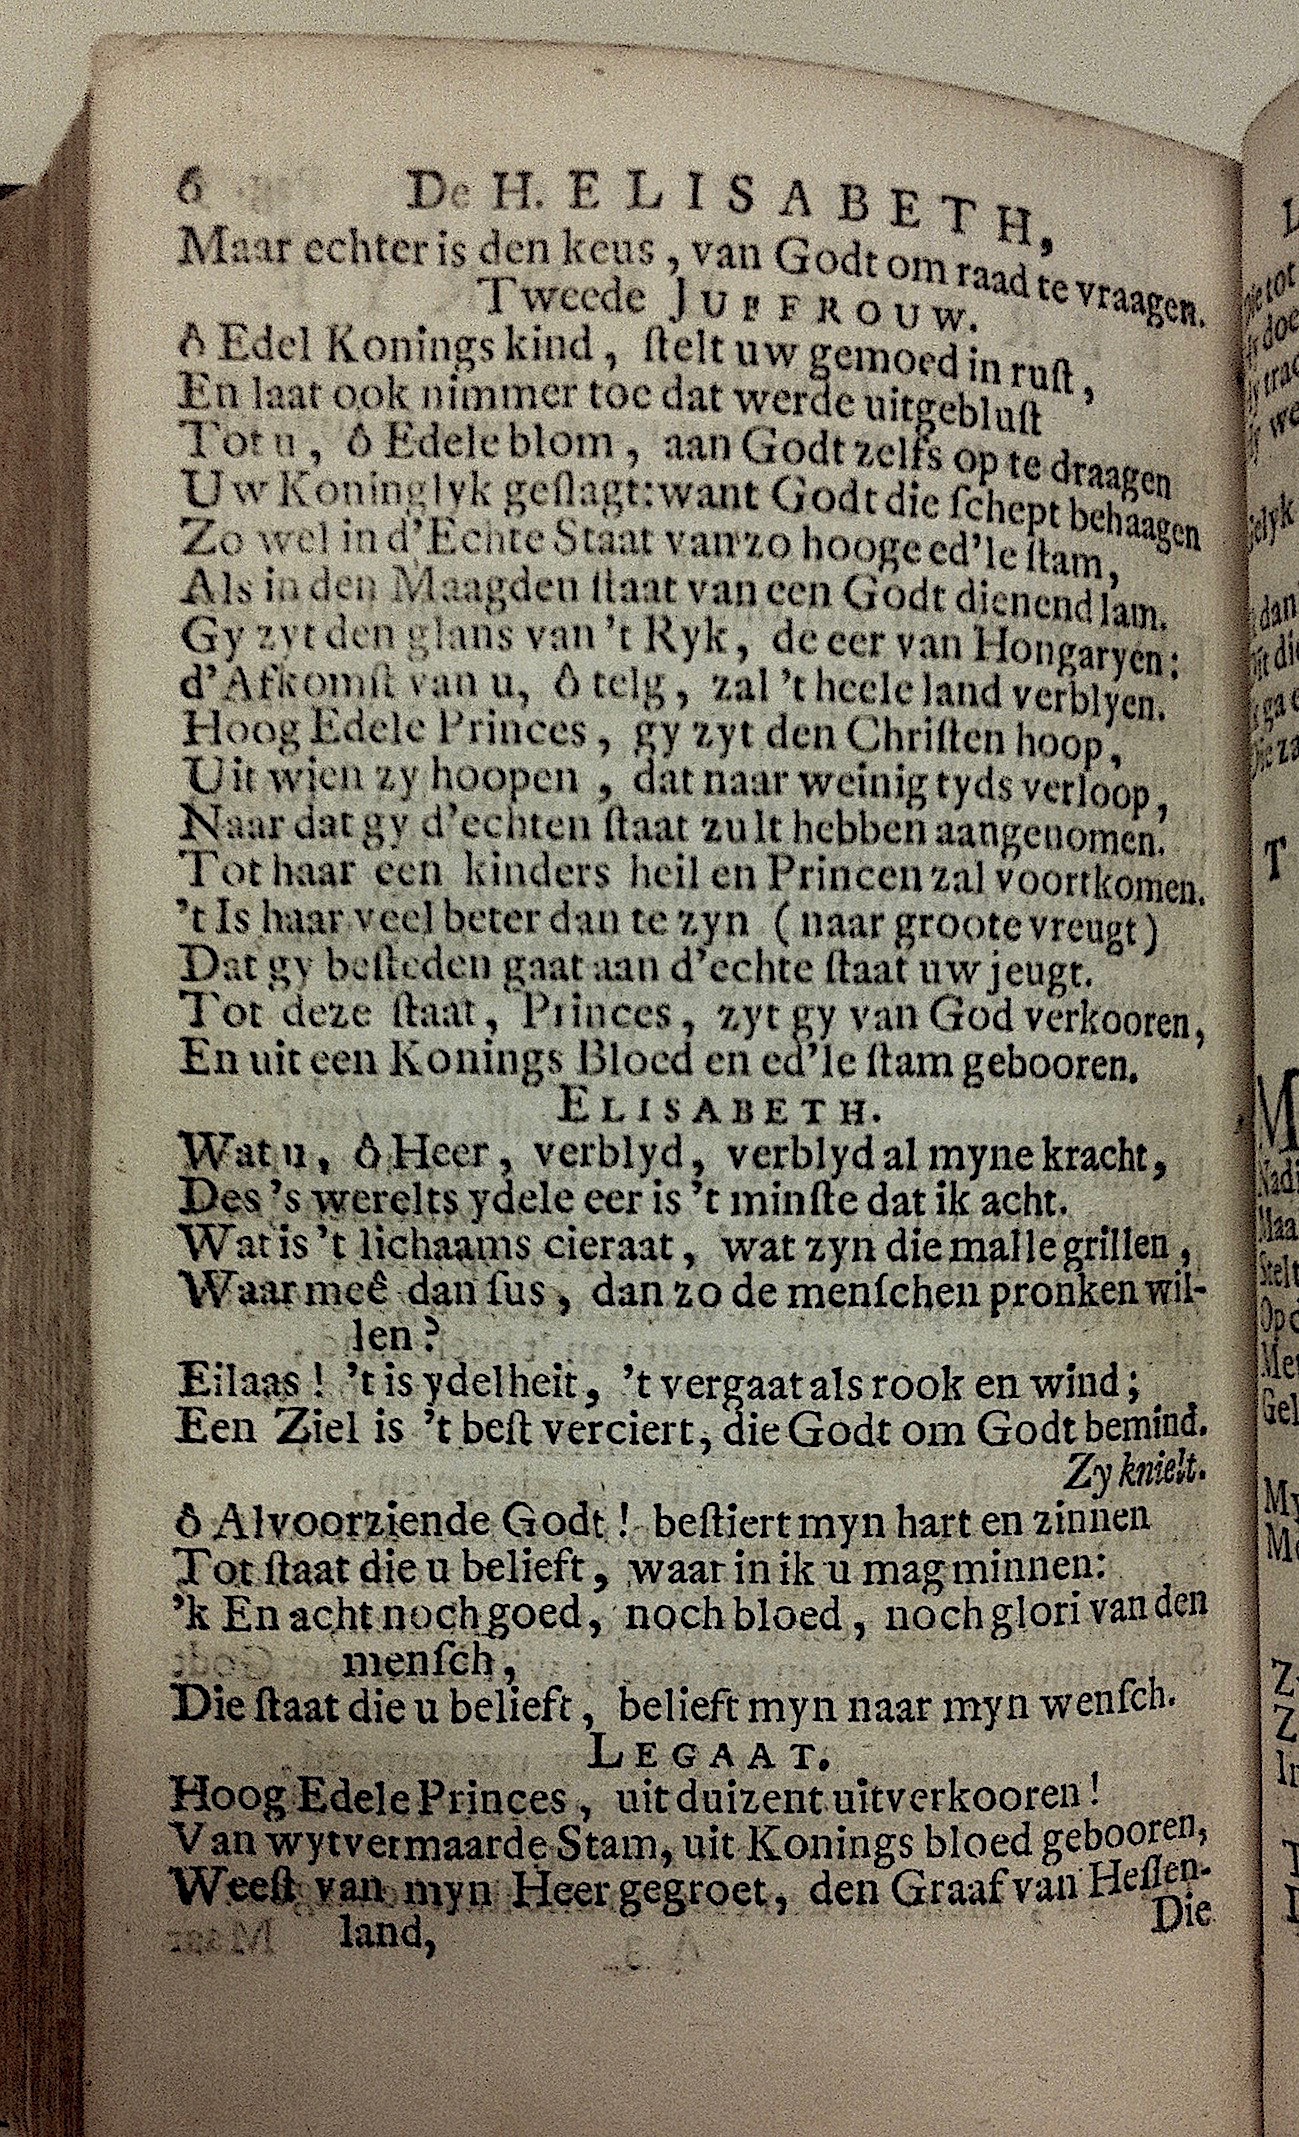 6 De H. ELISABETH,
Maar echter is den keus, van Godt om raad te vraagen.
Tweede JUFFROUW.
ô Edel Konings kind, ſtelt uw gemoed in ruſt,
En laat ook nimmer toe dat werde uitgebluſt
Tot u, ô Edele blom, aan Godt zelfs op te draagen
Uw Koninglyk geſlagt: want Godt die ſchept behaagen
Zo wel in d'Echte Staat van zo hooge ed'le ſtam,
Als in den Maagden ſtaat van een Godt dienend lam.
Gy zyt den glans van 't Ryk, de eer van Hongaryen:
d'Afkomſt van u, ô telg, zal 't heele land verblyen.
Hoog Edele Princes, gy zyt den Chriſten hoop,
Uit wien zy hoopen, dat naar weinig tyds verloop,
Naar dat gy d'echten ſtaat zult hebben aangenomen.
Tot haar een kinders heil en Princen zal voortkomen.
't Is haar veel beter dan te zyn (naar groote vreugt)
Dat gy beſteden gaat aan d'echte ſtaat uw jeugt.
Tot deze ſtaat, Princes, zyt gy van God verkooren,
En uit een Konings Bloed en ed'le ſtam gebooren.
ELISABETH.
Wat u, ô Heer, verblyd, verblyd al myne kracht,
Des 's werelts ydele eer is 't minſte dat ik acht.
Wat is 't lichaams cieraat, wat zyn die malle grillen,
Waar meê dan ſus, dan zo de menſchen pronken wil-
len?
Eilaas! 't is ydelheit, 't vergaat als rook en wind;
Een Ziel is 't beſt verciert, die Godt om Godt bemind.
Zy knielt.
ô Alvoorziende Godt! beſtiert myn hart en zinnen
Tot ſtaat die u belieft, waar in ik u mag minnen:
'k En acht noch goed, noch bloed, noch glori van den
menſch,
Die ſtaat die u belieft, belieft myn naar myn wenſch.
LEGAAT.
Hoog Edele Princes, uit duizent uitverkooren!
Van wytvermaarde Stam, uit Konings bloed gebooren,
Weeſt van myn Heer gegroet, den Graaf van Heſſen-
land,
Die